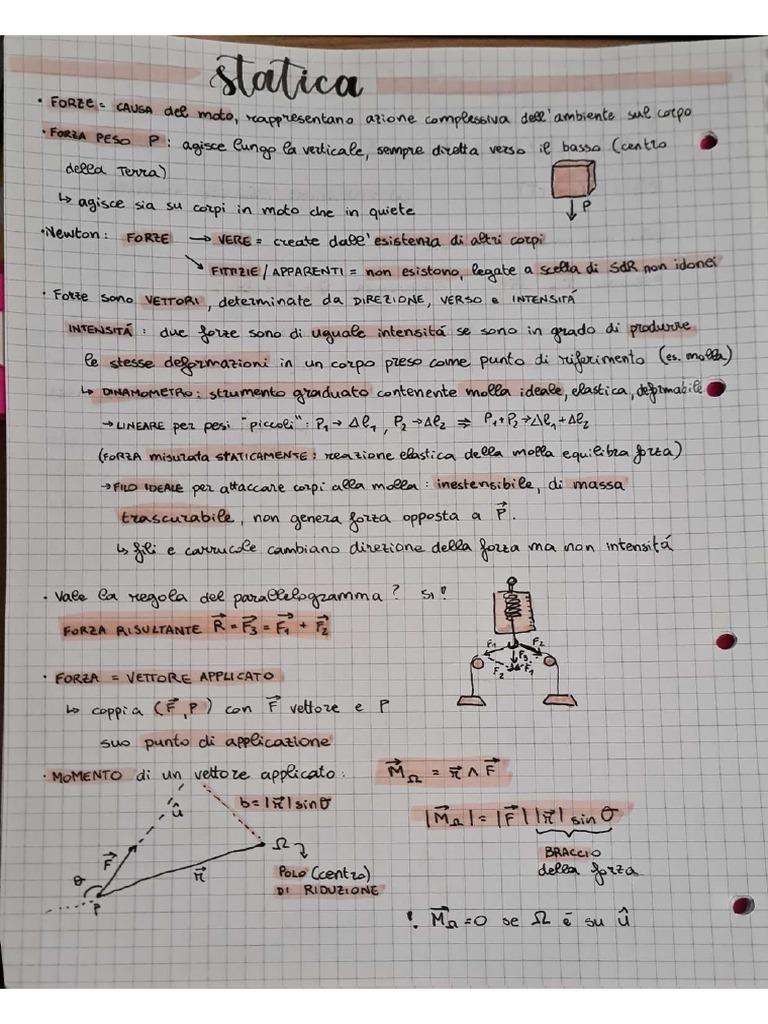 statica
• FORZE = CAUSA del moto, rappresentano azione complessiva dell'ambiente sul corpo
• FORZA PESO P : agisce lungo la verticale, sempre diretta verso il basso (centro
della Terra)
↳ agisce sia su corpi in moto che in quiete
P
• Newton: FORZE → VERE = create dall'esistenza di altri corpi
↘ FITTIZIE / APPARENTI = non esistono, legate a scelta di SdR non idonei
• Forze sono VETTORI, determinate da DIREZIONE, VERSO e INTENSITÁ
INTENSITÁ : due forze sono di uguale intensitá se sono in grado di produrre
le stesse deformazioni in un corpo preso come punto di riferimento (es. molla)
↳ DINAMOMETRO : strumento graduato contenente molla ideale, elastica, deformabile
→ LINEARE per pesi "piccoli" : P₁ → Δl₁, P₂ → Δl₂ ⇒ P₁+P₂ → Δl₁+Δl₂
(FORZA misurata STATICAMENTE : reazione elastica della molla equilibra forza)
→ FILO IDEALE per attaccare corpi alla molla : inestensibile, di massa
trascurabile, non genera forza opposta a P⃗.
↳ fili e carrucole cambiano direzione della forza ma non intensitá
• Vale la regola del parallelogramma? SI!
FORZA RISULTANTE R⃗ = F⃗₃ = F⃗₁ + F⃗₂
F₁ F₂
F₃
F₂ F₁
• FORZA = VETTORE APPLICATO
↳ coppia (F⃗, P) con F⃗ vettore e P
suo punto di applicazione
• MOMENTO di un vettore applicato: M⃗_Ω = r⃗ ∧ F⃗
b = |r⃗| sin θ
|M⃗_Ω| = |F⃗| |r⃗| sin θ
BRACCIO
della forza
û
F⃗
θ
P
r⃗
Ω
POLO (centro)
DI RIDUZIONE
! M⃗_Ω = 0 se Ω é su û